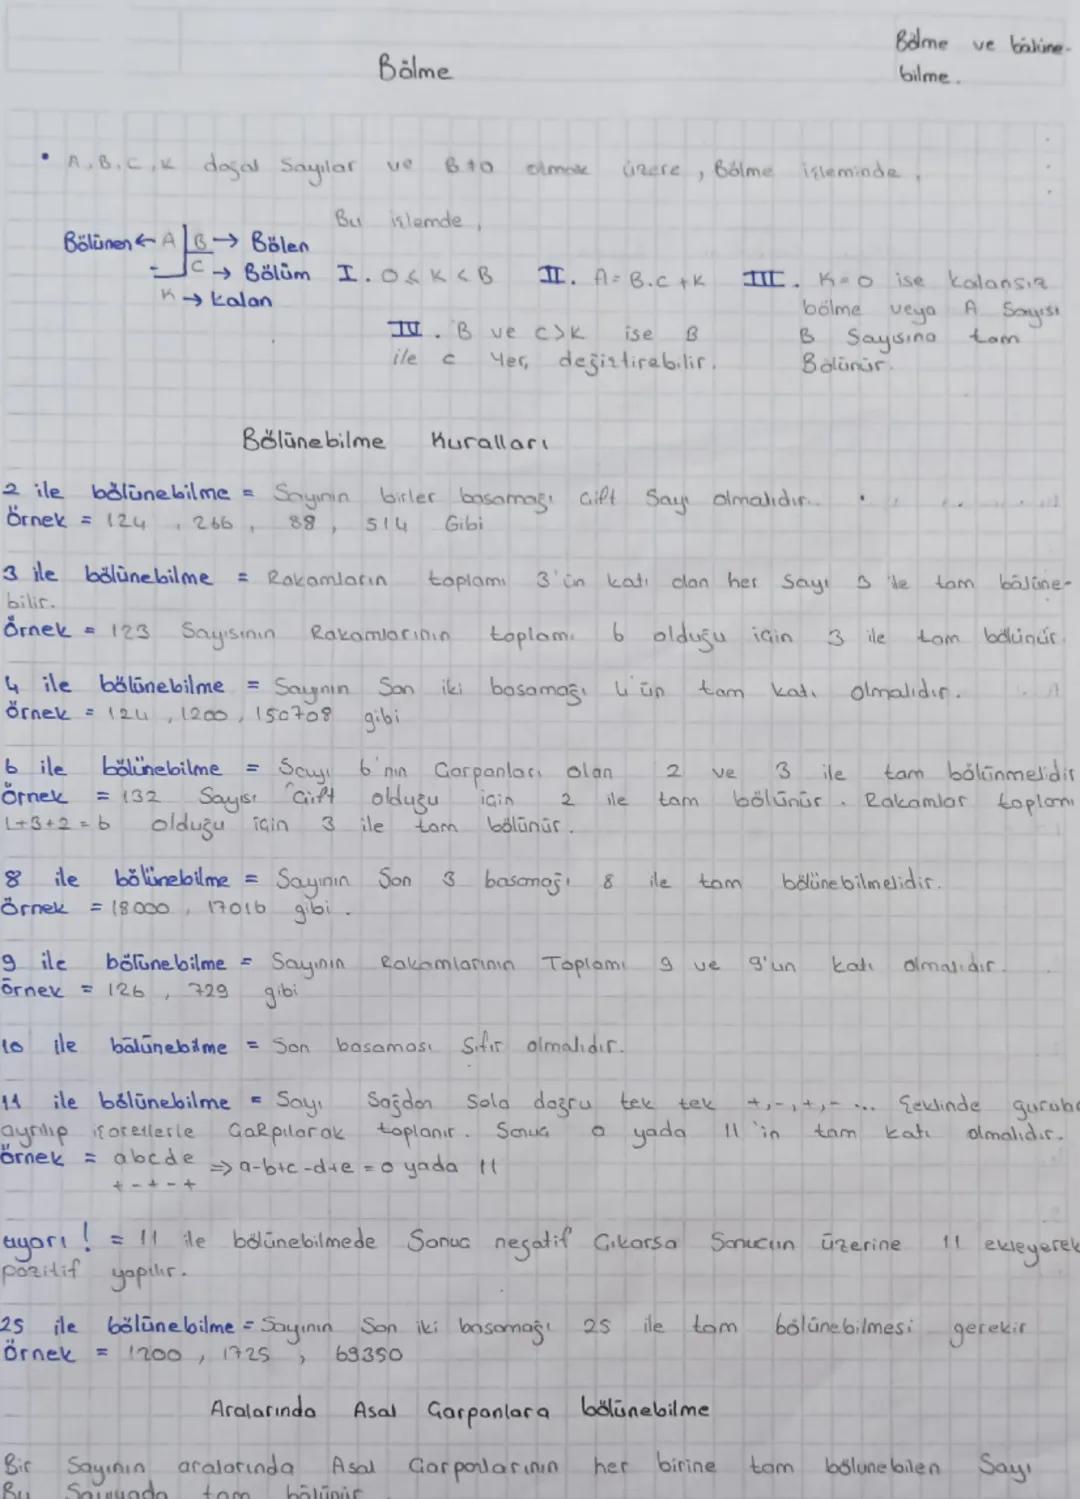 Bölme ve bölüne-
bilme.
Bölme
• A, B, C, K doğal Sayılar ve B≠0 olmak üzere, Bölme işleminde,
Bu işlemde,
Bölünen ← A B → Bölen
C → Bölüm
K → Kalan
I. 0≤K<B II. A=B.C+K III. K=0 ise kalansız
bölme veya A Sayısı
B Sayısına tam
Bölünür.
IV. B ve C>K ise B
ile C Yer, değiştirebilir.
Bölünebilme Kuralları
2 ile bölünebilme = Sayının birler basamağı Çift Sayı olmalıdır.
Örnek = 124, 266, 88, 514 Gibi
3 ile bölünebilme = Rakamların toplamı 3'ün katı olan her Sayı 3 ile tam bölüne-
bilir.
Örnek = 123 Sayısının Rakamlarının toplamı 6 olduğu için 3 ile tam bölünür.
4 ile bölünebilme = Sayının Son iki basamağı 4'ün tam katı olmalıdır.
Örnek = 124, 1200, 150708 gibi
6 ile bölünebilme = Sayı 6'nın Çarpanları olan 2 ve 3 ile tam bölünmelidir
Örnek = 132 Sayısı Çift olduğu için 2 ile tam bölünür. Rakamlar toplamı
1+3+2=6 olduğu için 3 ile tam bölünür.
8 ile bölünebilme = Sayının Son 3 basamağı 8 ile tam bölünebilmelidir.
Örnek = 18000, 17016 gibi.
9 ile bölünebilme = Sayının Rakamlarının Toplamı 9 ve 9'un katı olmalıdır.
Örnek = 126, 729 gibi
10 ile bölünebilme = Son basaması Sıfır olmalıdır.
11 ile bölünebilme = Sayı Sağdan Sola doğru tek tek +,-,+,- ... Şeklinde guruba
ayrılıp işaretlerle Çarpılarak toplanır. Sonuç 0 yada 11'in tam katı olmalıdır.
Örnek = abcde ⇒ a-b+c-d+e = 0 yada 11
+ - + - +
uyarı! = 11 ile bölünebilmede Sonuç negatif Çıkarsa Sonucun üzerine 11 ekleyerek
pozitif yapılır.
25 ile bölünebilme = Sayının Son iki basamağı 25 ile tam bölünebilmesi gerekir
Örnek = 1200, 1725, 69350
Aralarında Asal Çarpanlara bölünebilme
Bir Sayının aralarında Asal Çarpanlarının her birine tam bölünebilen Sayı
Bu Sayıyada tam bölünür.